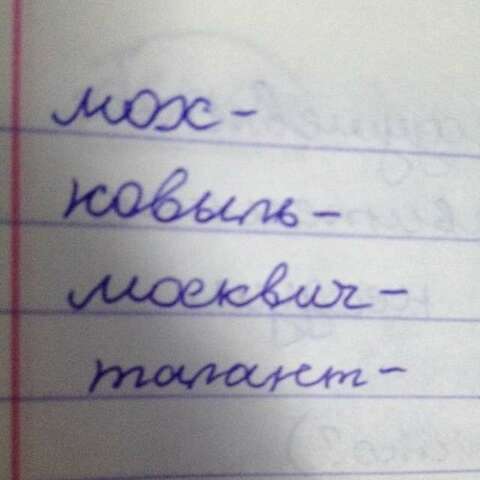 мох -
ковыль -
москвич -
талант -